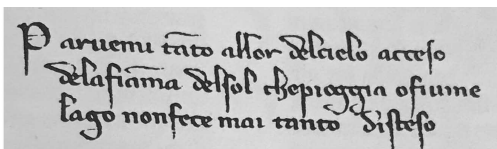 Paruemi tāto allor delcielo acceso
delafiāma delsol chepioggia ofiume
lago nonfece mai tanto disteso